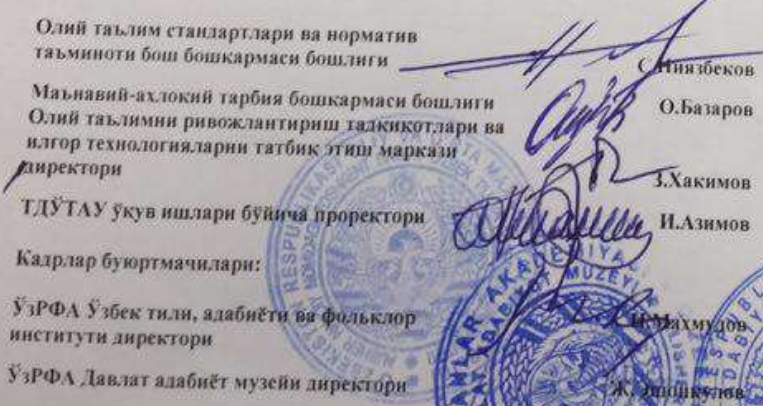 Олий таълим стандартлари ва норматив
таъминоти бош бошкармаси бошлиги С.Ниязбеков
Маънавий-ахлокий тарбия бошкармаси бошлиги О.Базаров
Олий таълимни ривожлантириш тадкикотлари ва
илгор технологияларни татбик этиш маркази
директори З.Хакимов
ТДЎТАУ ўкув ишлари бўйича проректори И.Азимов
Кадрлар буюртмачилари:
ЎзРФА Ўзбек тили, адабиёти ва фольклор
институти директори Н.Махмудов
ЎзРФА Давлат адабиёт музейи директори Ж.
AKADEMIYASI
MUZEYI